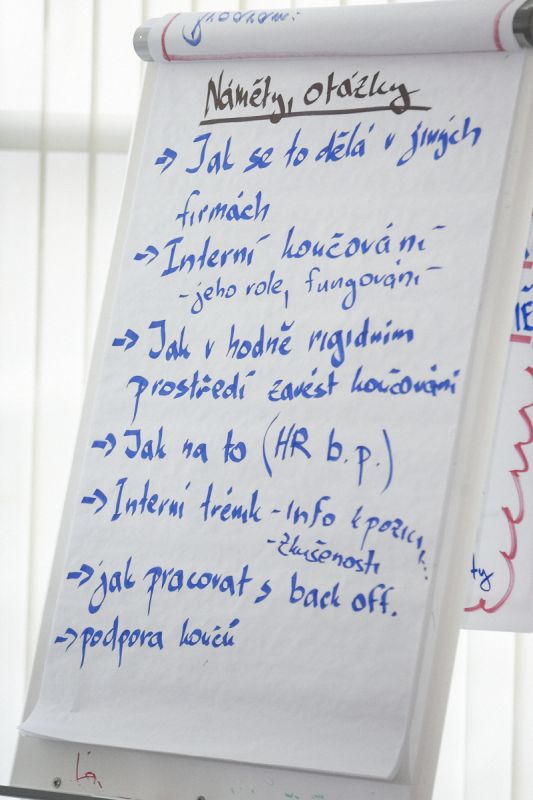 Náměty, otázky
→ Jak se to dělá v jiných
firmách
→ Interní koučování
- jeho role, fungování
→ Jak v hodně rigidním
prostředí zavést koučování
→ Jak na to (HR b.p.)
→ Interní trénik - Info k pozici,
- Zkušenosti
→ jak pracovat s back off.
→ podpora koučů
ty